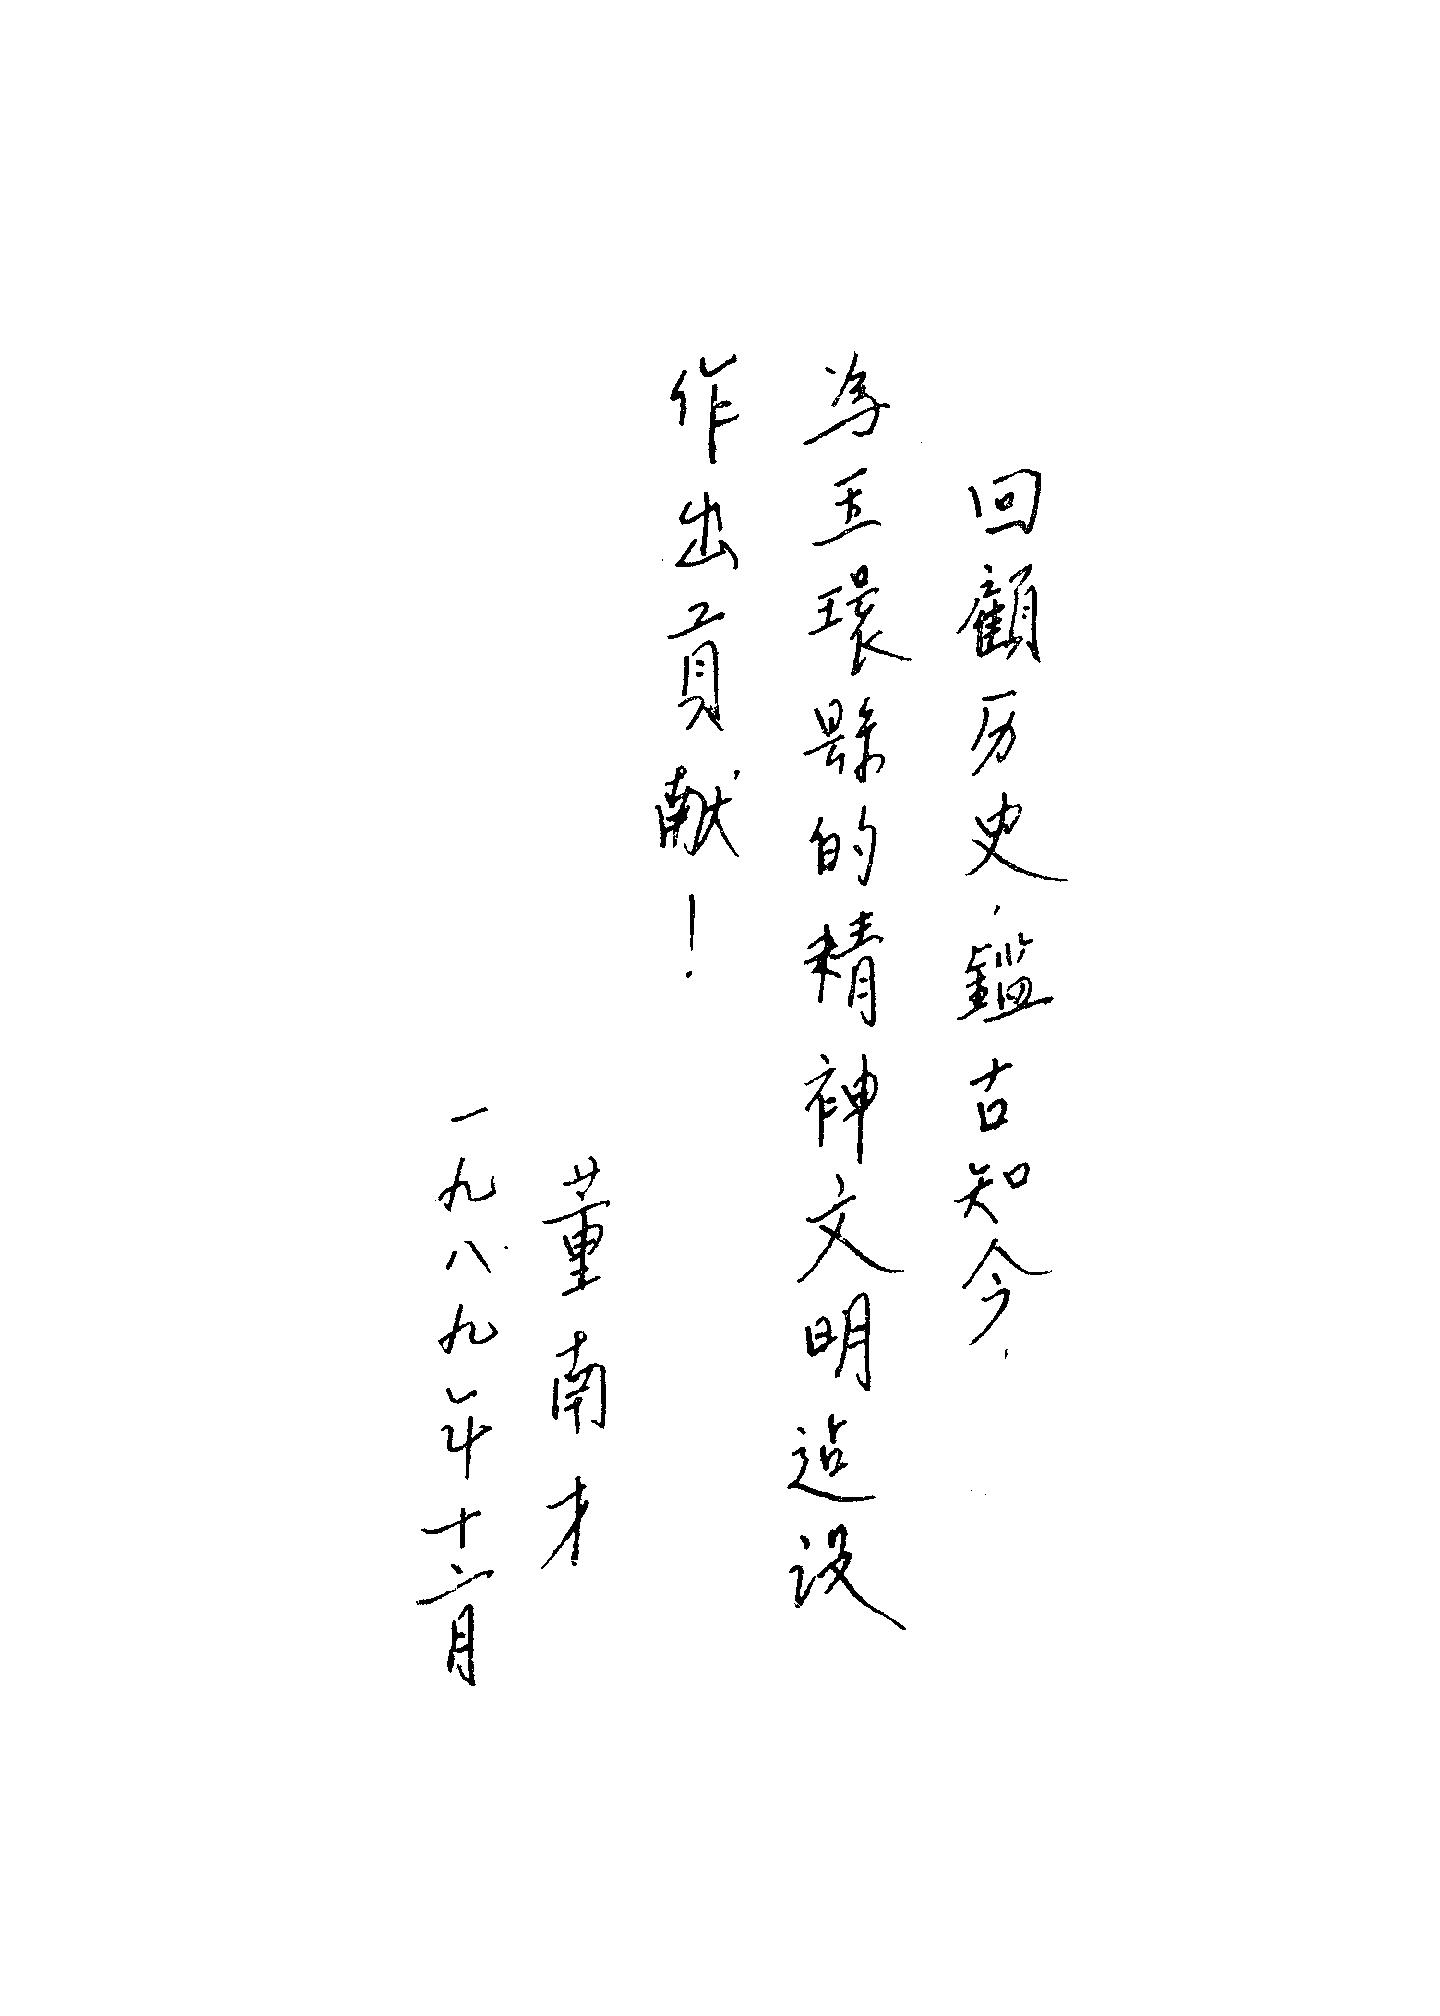 回顧历史，鑑古知今，
為玉環縣的精神文明迠设
作出貢献！
董南才
一九八九年十二月